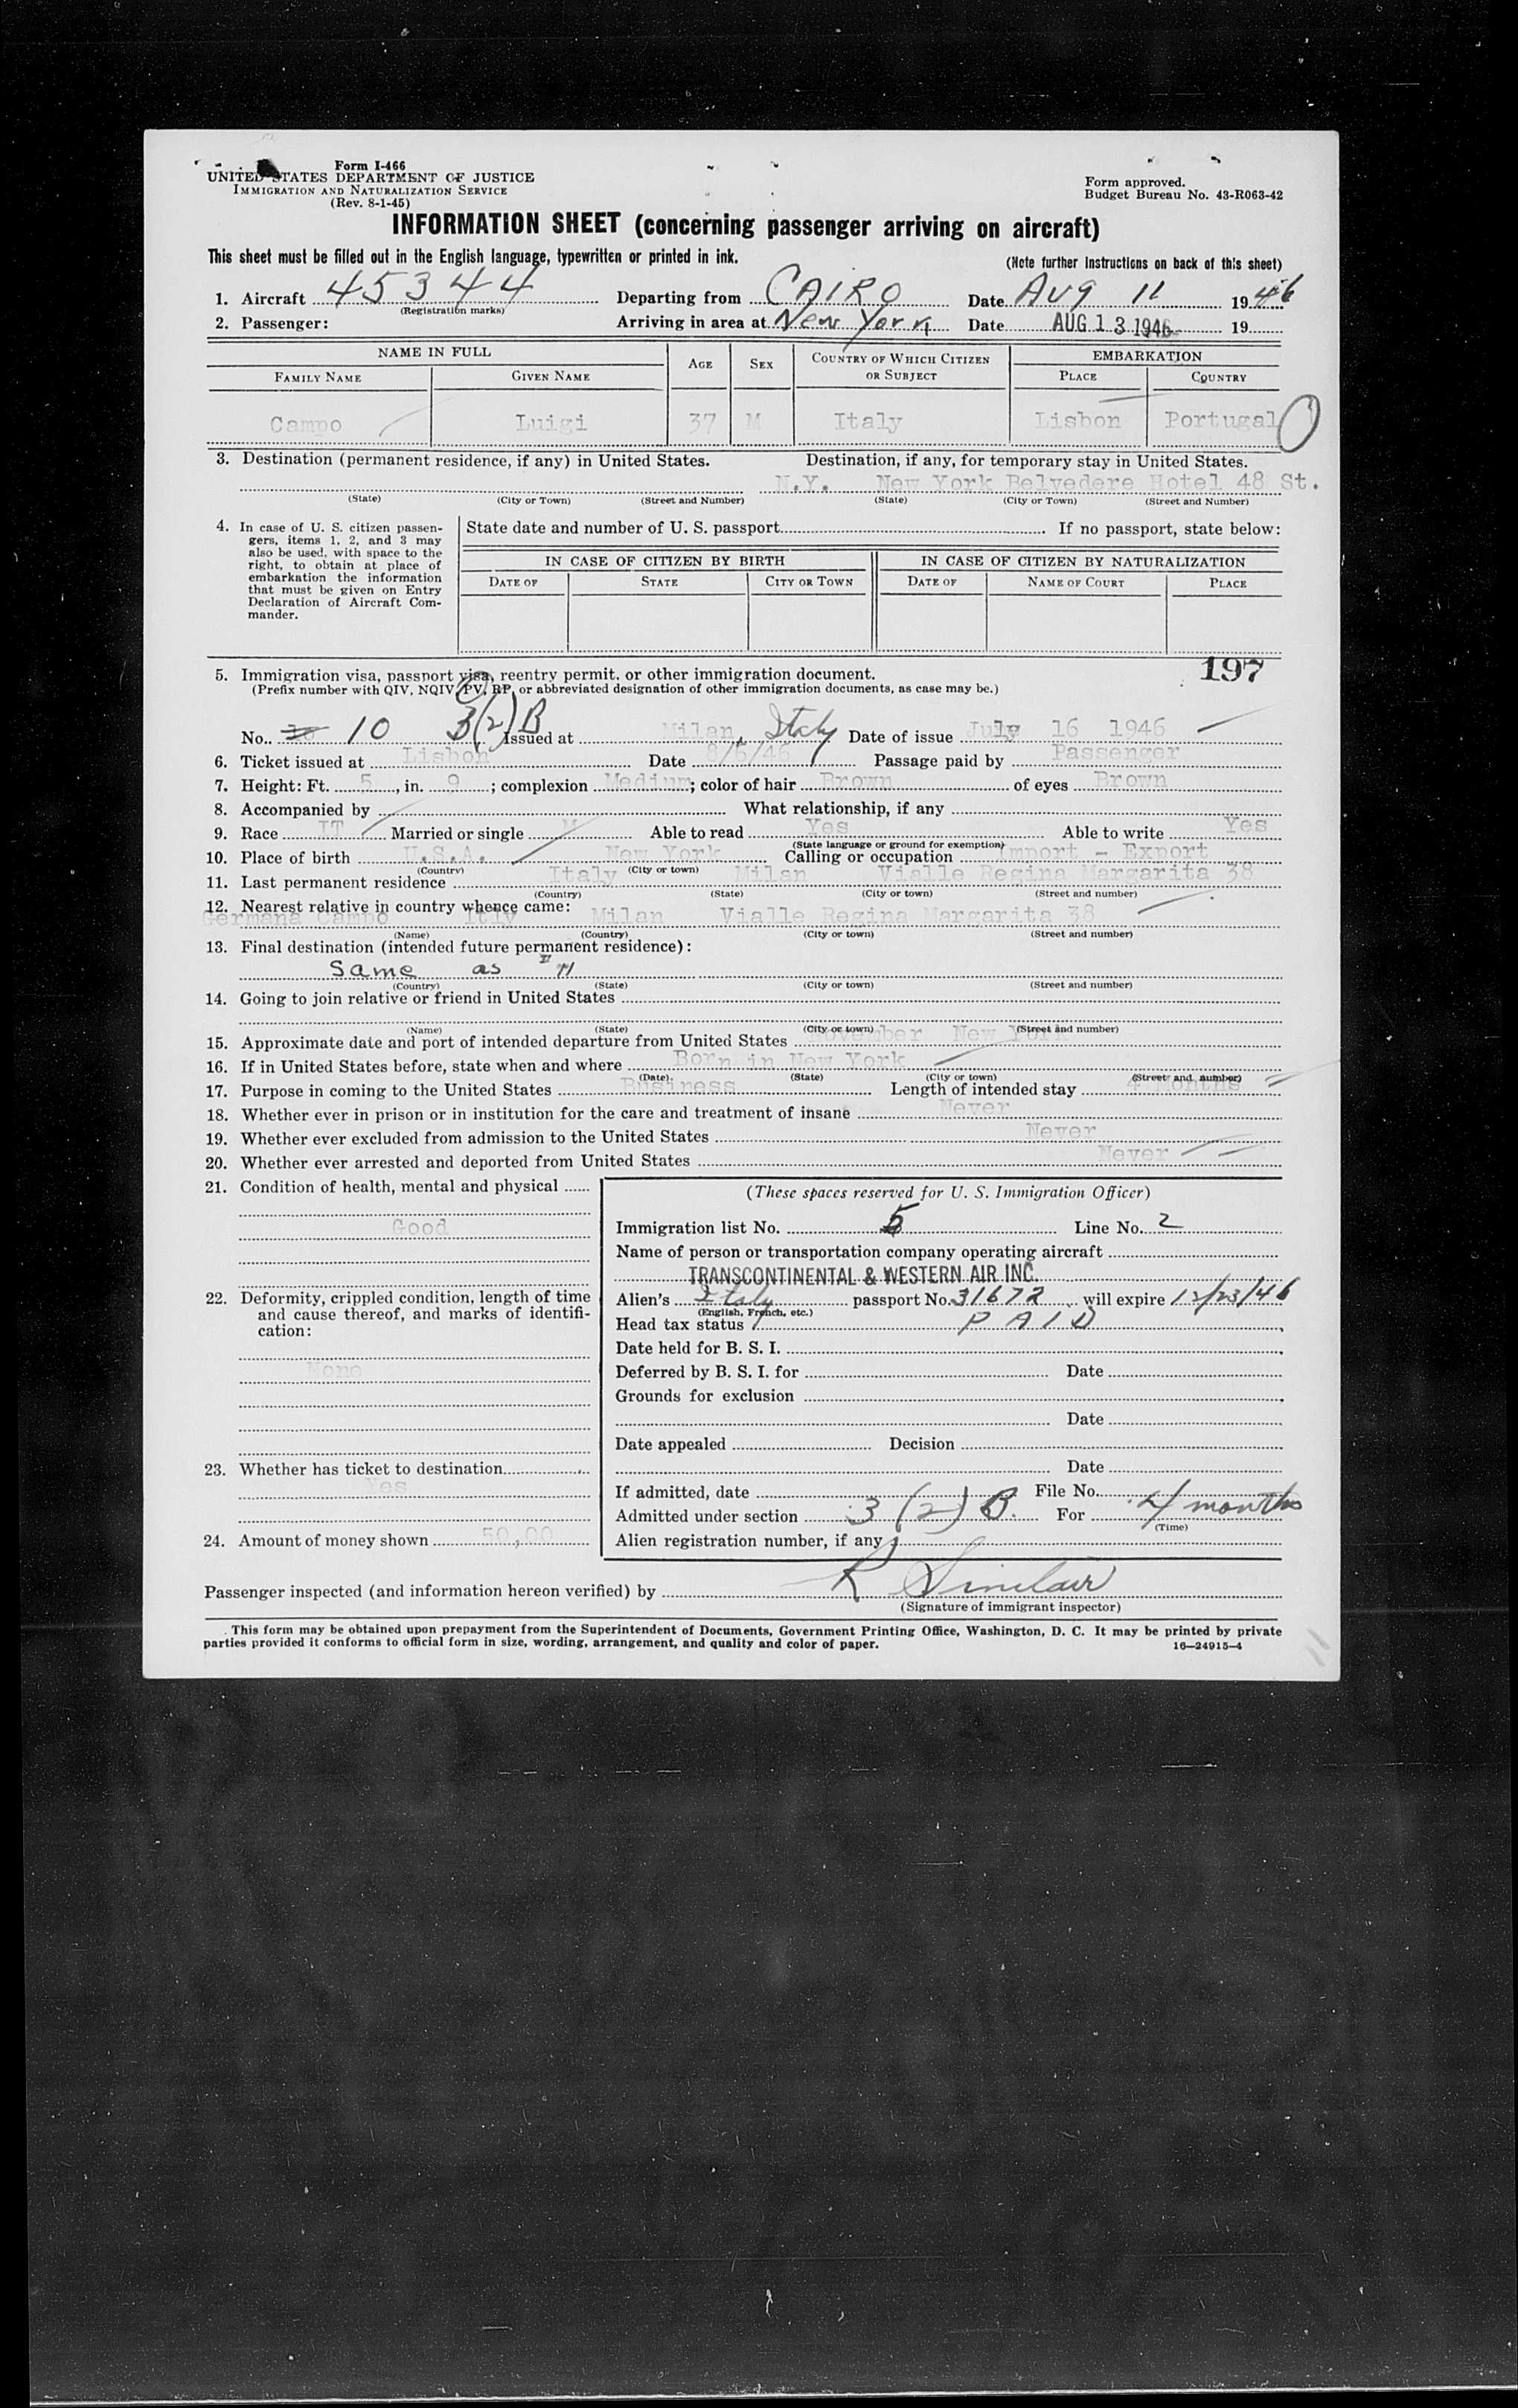 Form I-466
UNITED STATES DEPARTMENT OF JUSTICE
IMMIGRATION AND NATURALIZATION SERVICE
(Rev. 8-1-45)
Form approved.
Budget Bureau No. 43-R063-42
INFORMATION SHEET (concerning passenger arriving on aircraft)
This sheet must be filled out in the English language, typewritten or printed in ink.
(Note further instructions on back of this sheet)
1. Aircraft 45344 Departing from CAIRO Date Aug 11 1946
(Registration marks)
2. Passenger: Arriving in area at New York Date AUG 13 1946 19
NAME IN FULL AGE SEX COUNTRY OF WHICH CITIZEN OR SUBJECT EMBARKATION
FAMILY NAME GIVEN NAME PLACE COUNTRY
Campo Luigi 37 M Italy Lisbon Portugal
3. Destination (permanent residence, if any) in United States. Destination, if any, for temporary stay in United States.
N.Y. New York Belvedere Hotel 48 St.
(State) (City or Town) (Street and Number) (State) (City or Town) (Street and Number)
4. In case of U. S. citizen passengers, items 1, 2, and 3 may also be used, with space to the right, to obtain at place of embarkation the information that must be given on Entry Declaration of Aircraft Commander.
State date and number of U. S. passport If no passport, state below:
IN CASE OF CITIZEN BY BIRTH IN CASE OF CITIZEN BY NATURALIZATION
DATE OF STATE CITY OR TOWN DATE OF NAME OF COURT PLACE
197
5. Immigration visa, passport visa, reentry permit, or other immigration document.
(Prefix number with QIV, NQIV, PV, RP, or abbreviated designation of other immigration documents, as case may be.)
No. 10 3(2)B Issued at Milan, Italy Date of issue July 16 1946
6. Ticket issued at Lisbon Date 8/6/46 Passage paid by Passenger
7. Height: Ft. 5, in. 9; complexion Medium; color of hair Brown of eyes Brown
8. Accompanied by What relationship, if any
9. Race IT Married or single M Able to read Yes Able to write Yes
(State language or ground for exemption)
10. Place of birth U.S.A. New York Calling or occupation Import - Export
(Country) (City or town)
11. Last permanent residence Italy Milan Vialle Regina Margarita 38
(Country) (State) (City or town) (Street and number)
12. Nearest relative in country whence came:
Germana Campo Itly Milan Vialle Regina Margarita 38
(Name) (Country) (City or town) (Street and number)
13. Final destination (intended future permanent residence):
Same as 11
(Country) (State) (City or town) (Street and number)
14. Going to join relative or friend in United States
(Name) (State) (City or town) (Street and number)
15. Approximate date and port of intended departure from United States November New York
16. If in United States before, state when and where Born in New York
(Date) (State) (City or town) (Street and number)
17. Purpose in coming to the United States Business Length of intended stay 4 Months
18. Whether ever in prison or in institution for the care and treatment of insane Never
19. Whether ever excluded from admission to the United States Never
20. Whether ever arrested and deported from United States Never
21. Condition of health, mental and physical
Good
22. Deformity, crippled condition, length of time and cause thereof, and marks of identification:
None
23. Whether has ticket to destination
Yes
24. Amount of money shown 50,00
(These spaces reserved for U. S. Immigration Officer)
Immigration list No. 5 Line No. 2
Name of person or transportation company operating aircraft
TRANSCONTINENTAL & WESTERN AIR INC.
Alien's Italy passport No. 31672 will expire 12/23/46
(English, French, etc.)
Head tax status PAID
Date held for B. S. I.
Deferred by B. S. I. for Date
Grounds for exclusion
Date
Date appealed Decision
Date
If admitted, date File No.
Admitted under section 3 (2) B. For 4 months
(Time)
Alien registration number, if any
Passenger inspected (and information hereon verified) by R Sinclair
(Signature of immigrant inspector)
This form may be obtained upon prepayment from the Superintendent of Documents, Government Printing Office, Washington, D. C. It may be printed by private
parties provided it conforms to official form in size, wording, arrangement, and quality and color of paper. 16—24915-4